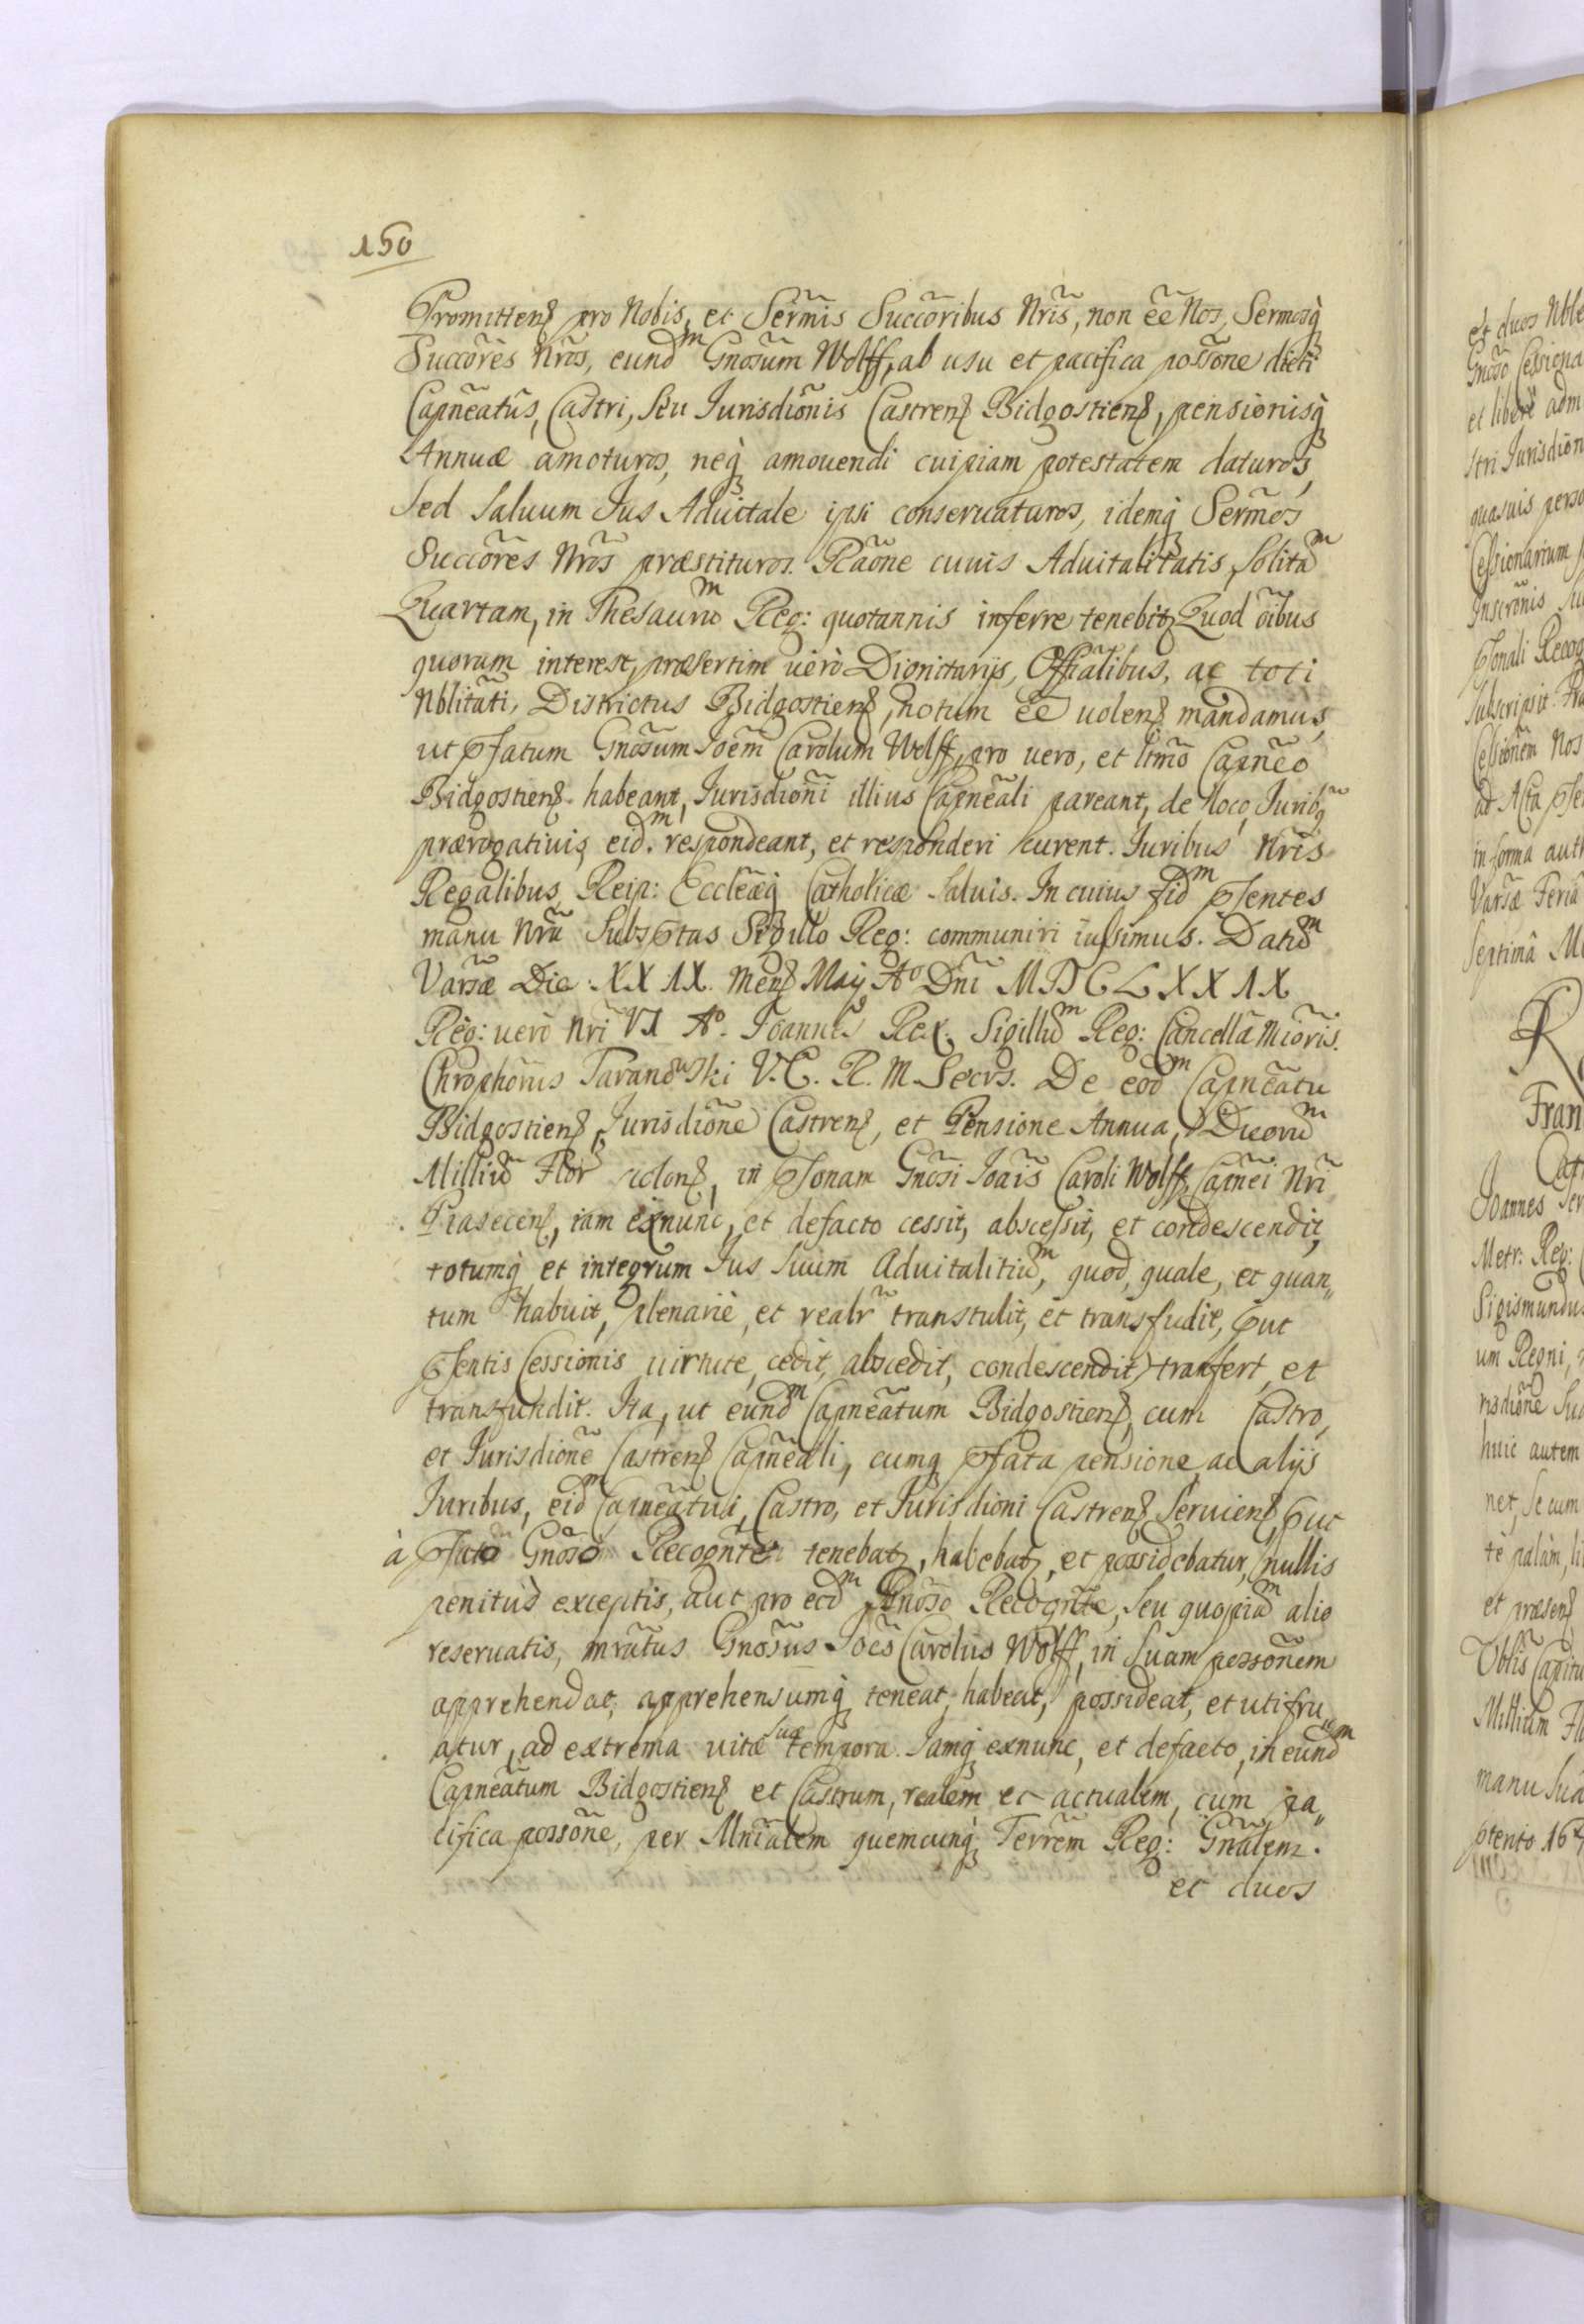 150
Promittens pro Nobis, et Serm̃is Succõribus Nr̃is, non ẽe Nos, Sermosq̃
Succõres Nr̃os, eundᵐ Gnõsum Wolff, ab usu et pacifica possõne dicti
Capnẽatus, Castri, seu Jurisdiõnis Castrens Bidgostiens, pensionisq̃
Annuæ amoturos, neq̃ amouendi cuipiam potestatem daturos,
Sed Saluum Jus Aduitale ipsi conseruaturos, idemq̃ Serm̃os
Succõres Nr̃os præstituros. Rãone cuius Aduitalitatis, solitaᵐ
Quartam, in Thesauruᵐ Reg: quotannis inferre tenebitᶻ Quod õibus
quorum interest, præsertim uerò Dignitarijs, Officiãlibus, ac toti
Nblitãti, Districtus Bidgostiens, notum ẽe uolens mandamus,
ut pfatum Gnõsum Joẽm Carolum Wolff, pro uero, et l̃imo Capnẽo
Bidgostiens habeant, Jurisdiõni illius Capnẽali pareant, de loco, Juribq̃
prærogatiuis, eidᵐ. respondeant, et responderi curent. Juribus Nr̃is
Regalibus, Reip: Ecclẽæq̃ Catholicæ saluis. In cuius fidᵐ psentes
manu Nr̃a Subsptas Sigillo Reg: communiri iussimus. Datuᵐ
Varsæ Die XXIX. Mens Maij Aº Dñi MDCLXXIX
Reg: uerò Nr̃i VI Aº. Joannes Rex. Sigilluᵐ Reg: Cancellã Miõris.
Chrophõrus Taranowski V. C. R. M. Secrs. De eodᵐ Capnẽatu
Bidgostiens, Jurisdiõne Castrens, et Pensione Annua, Duoruᵐ
Milliũ Flor̃ polons, in psonam Gnõsi Joãis Caroli Wolff, Capnẽi Nr̃i
Piasecens, iam exnunc, et defacto cessit, abscessit, et condescendit,
totumq̃ et integrum Jus Suum Aduitalitiuᵐ, quod, quale, et quan„
tum habuit, plenariè, et realr̃ transtulit, et transfudit, put
psentis Cessionis uirtute, cedit, abscedit, condescendit, transfert, et
transfundit. Ita, ut eundᵐ Capnẽatum Bidgostiens, cum Castro,
et Jurisdiõne Castrens Capnẽali, cumq̃ pfata pensione, ac alijs
Juribus, eidᵐ Capnẽatui, Castro, et Jurisdioni Castrens Seruiens, put
à pfato Gnõso Recognte tenebatᶻ, habebatᶻ, et possidebatur, nullis
penitùs exceptis, aut pro eodᵐ Gnõso Recogñte, seu quopiaᵐ alio
reseruatis, mr̃atus Gnõsus Joẽs Carolus Wolff, in Suam possõnem
apprehendat, apprehensumq̃ teneat, habeat, possideat, et utifru„
atur, ad extrema uitæ suæ tempora. Jamq̃ exnunc, et defacto, in eundᵐ
Capnẽatum Bidgostiens et Castrum, realem et actualem, cum pa„
cifica possõne, per Mnĩalem quemcunq̃ Terr̃em Reg: Gnẽalem.
et duos
et duos Nble
Gnõso Cessiona
et liberè adm
stri Jurisdiõn
quasuis perso
Cessionarium
Inscrõnis Su
psonali Recog
Subscripsit.
Cessiõnem Nos
ad Acta pse
in forma auth
Varsæ Feria
Septimâ M
R
Fran
Cap
Joannes Ter
Metr: Reg:
Sigismundus
um Regni,
risdiõne Sua
huic autem
net, Se cum
tè palàm, li
et præsens
Oblĩs Capitu
Millium Fl
manu Sua
ptento 16